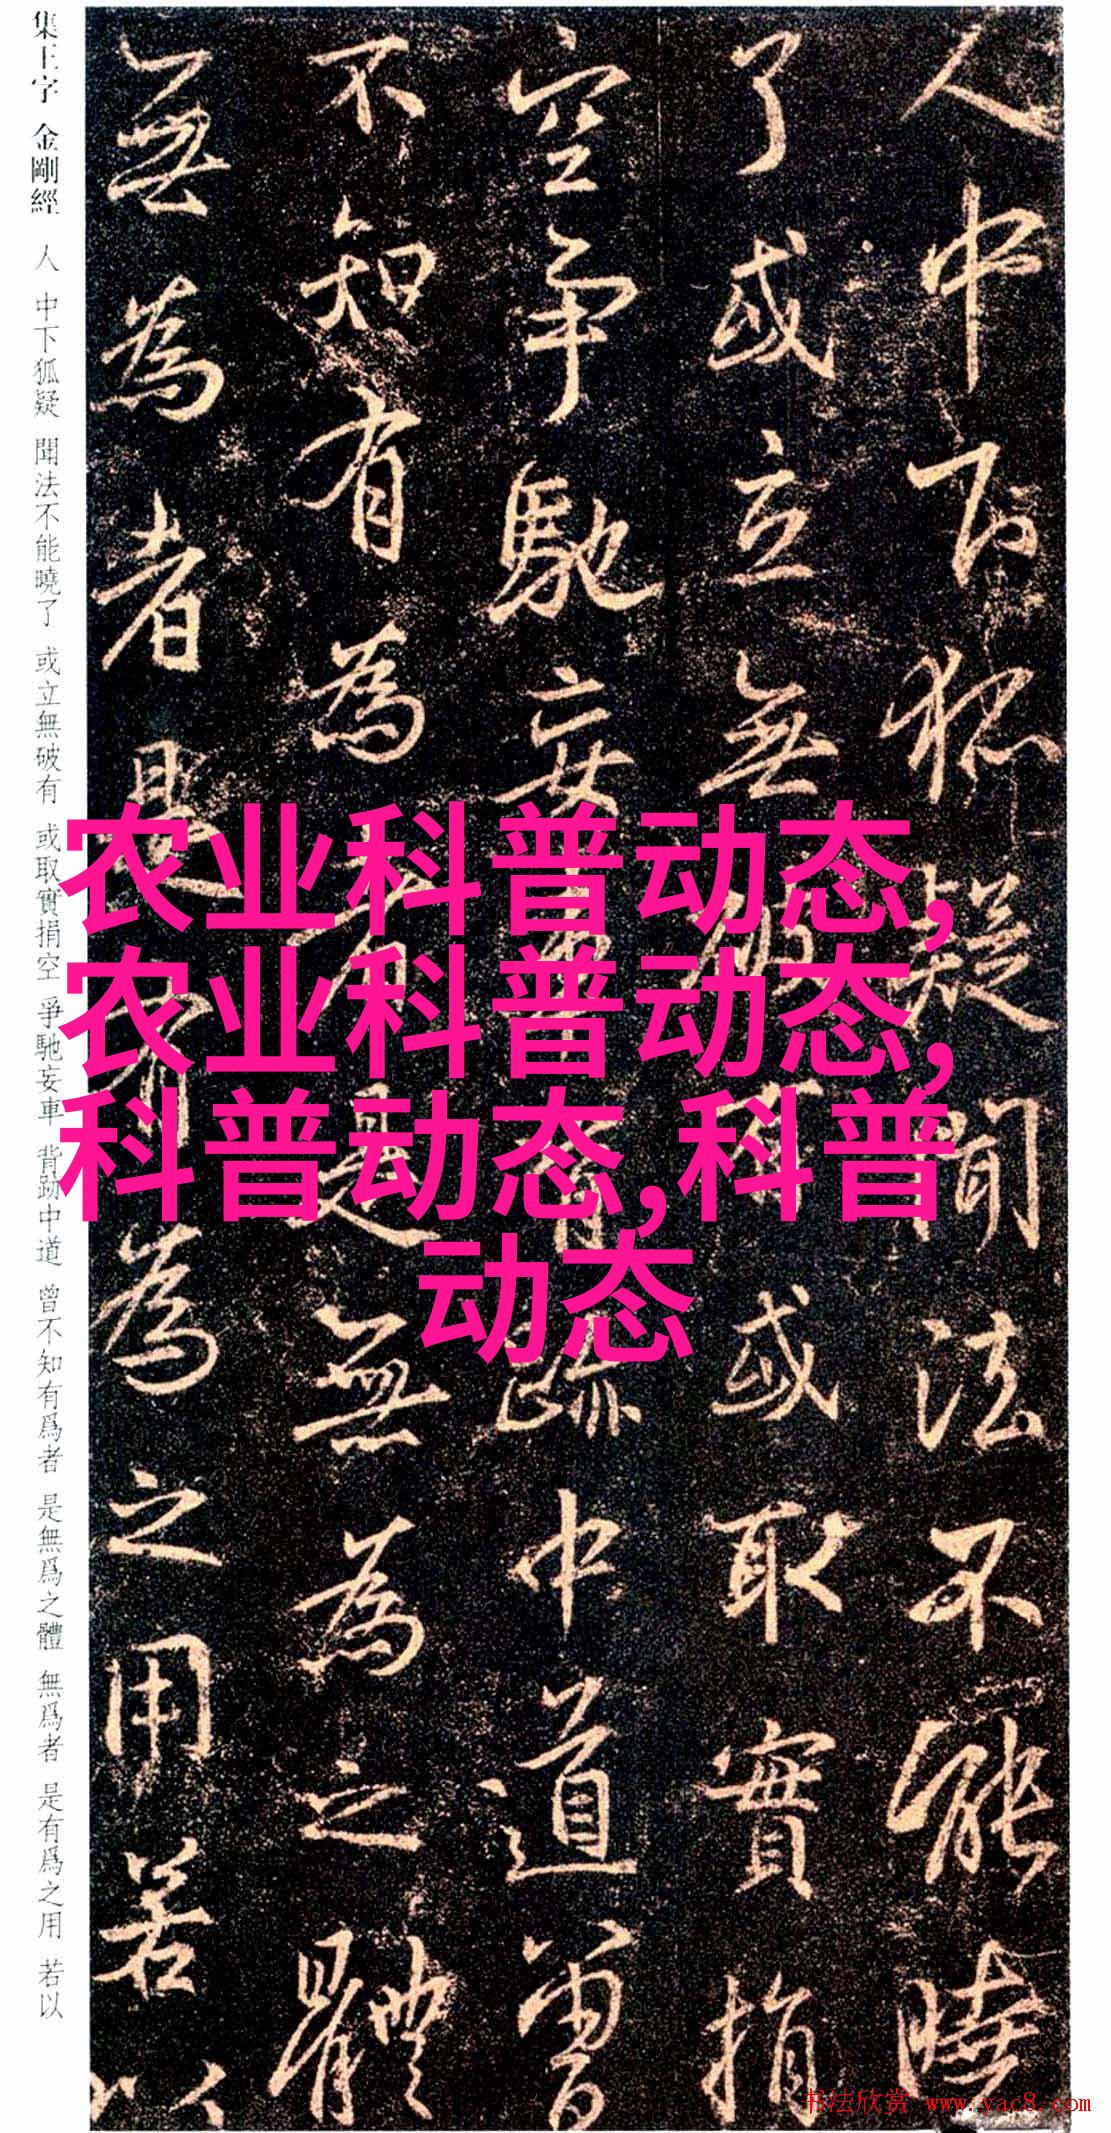 集王字 金剛經 人 中下狐疑 聞法不能曉了 或立無破有 或取實捐空 爭馳妄車 背跡中道 曾不知有爲者 是無爲之體 無爲者 是有爲之用 若以
人中下狐疑聞法不能曉
了或立無破有或取實捐
空爭馳妄車背跡中道曾
不知有為者是無為之體
無為者是有為之用若以
农业科普动态,
农业科普动态,
科普动态,科普
动态
书法欣赏 www.yac8.com